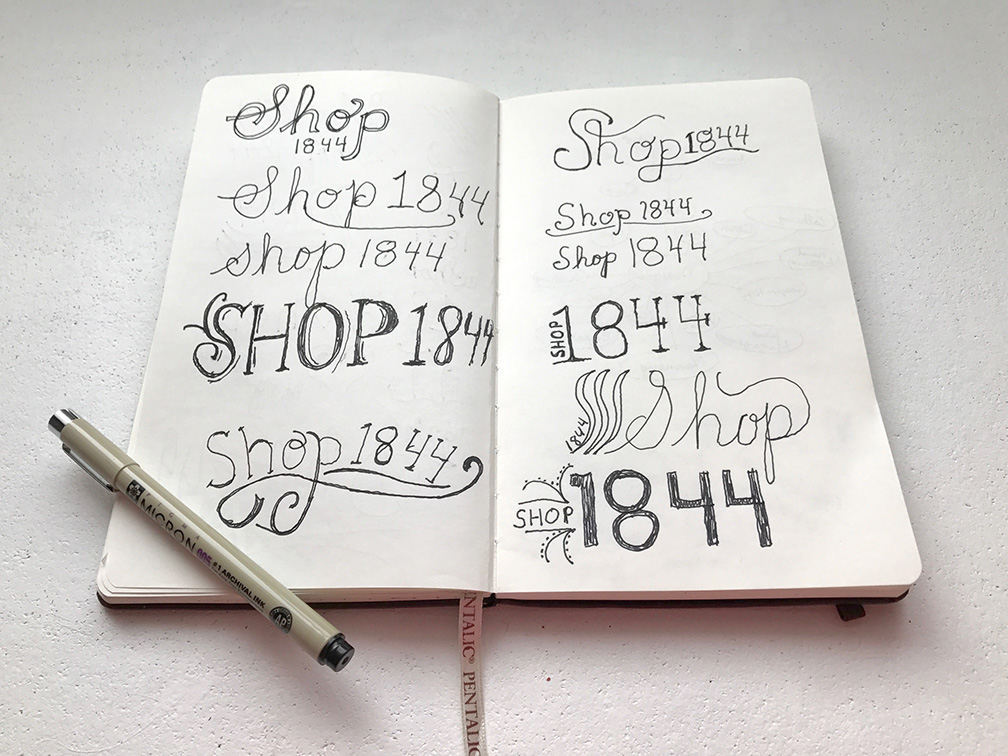 Shop
1844
Shop 1844
shop 1844
SHOP 1844
Shop 1844
Shop 1844
Shop 1844
Shop 1844
SHOP 1844
1844 Shop
SHOP 1844
MICRON 005 #1 ARCHIVAL INK
AP
PENTALIC® PENTALIC